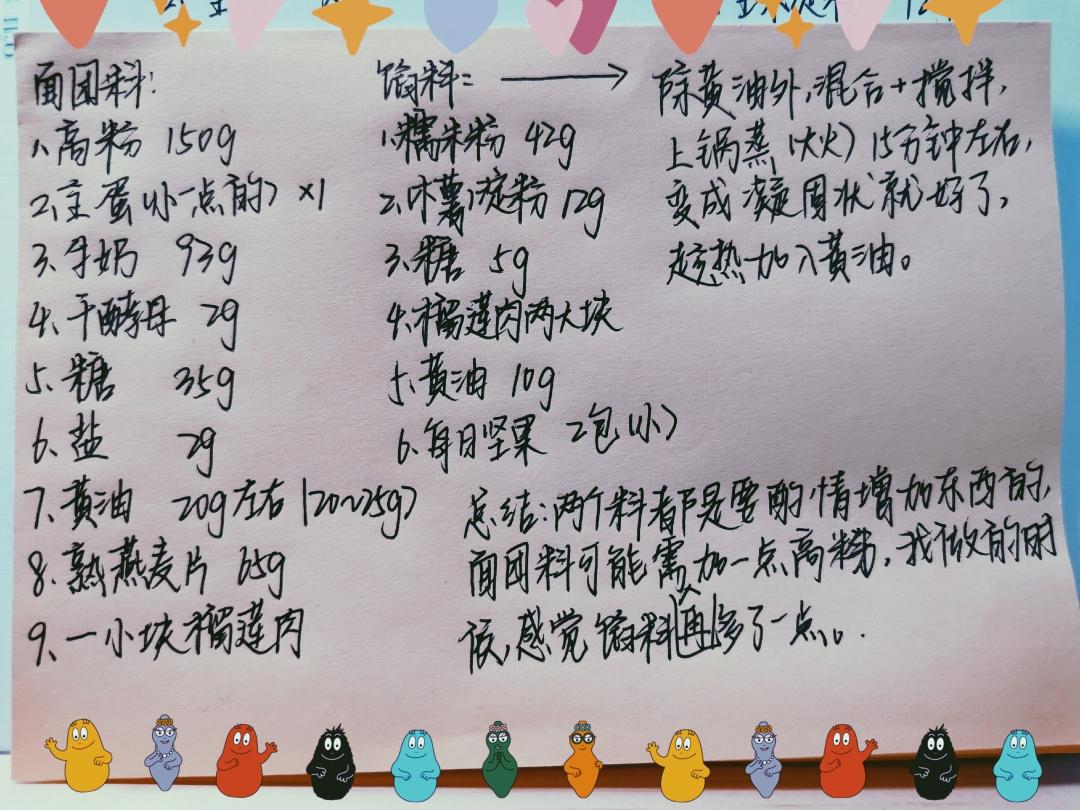 面团料:
1、高粉 150g
2、全蛋(小一点的) ×1
3、牛奶 93g
4、干酵母 2g
5、糖 35g
6、盐 2g
7、黄油 20g左右(20~25g)
8、熟燕麦片 65g
9、一小块榴莲肉
馅料: →
1、糯米粉 42g
2、木薯淀粉 12g
3、糖 5g
4、榴莲肉两大块
5、黄油 10g
6、每日坚果 2包(小)
除黄油外,混合+搅拌,
上锅蒸(大火)15分钟左右,
变成凝固状就好了,
趁热加入黄油。
总结:两个料都是要酌情增加东西的,
面团料可能需要加一点高粉,我做的时
候,感觉馅料再多了一点。